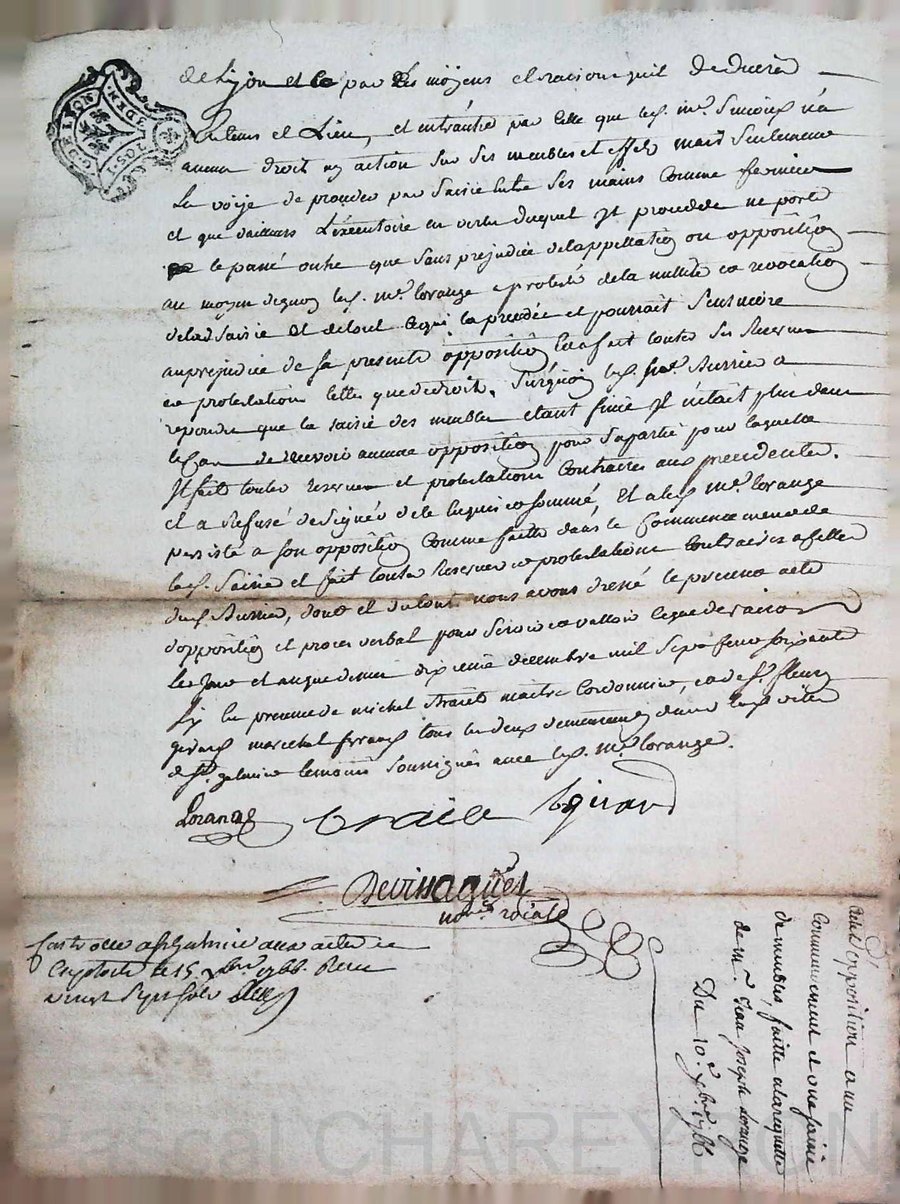 G. DE LYON
1. SOL
DEN.
de Lyon et ce par les moyens et raisons quil deduira
en tems et Lieu, et entrautre par celle que led. me. Simeon n'a
aucun droit ny action sur ses meubles et effets mais seulement
La voÿe de proceder par saisie entre ses mains Comme fermier
et que dailleurs L'exécutoire en vertu duquel Jl procedde ne porte
le passé outre que sans prejudice de lappellation ou opposition
au moyen dequoy led. me. loranze a protesté de la nullité et revocation
de lad. saisie et de tout ce qui la precédé et pourrait s'ensuivre
au prejudice de sa presente opposition et a fait toutes ses reserves
et protestations telles que de droit. Surquoy led. Burrier a
repondu que la saisie des meubles etant finie Jl n'etait plus dans
le Cas de recevoir aucune opposition pour sa partie pour laquelle
Jl fait toutes reserves et protestations Contraires aux precedentes,
et a Refusé de Signer de ce enquis et sommé, Et a led. me. loranze
persisté a son opposition Comme faitte dans le Commencement de
lad. Saisie et fait toutes Reserves et protestations Contraires a celles
dud. Burrier, dont et du tout nous avons dressé le present acte
d'opposition et procès verbal pour servir et valloir ce que de raison
Le Jour et an que dessus dixieme decembre mil sept cent soixante
six En presence de michel maitre Cordonnier, et de sr. fleury
marechal ferrant tous les deux demeurants dans lad. ville
de st. galmier temoins soussignés avec led. me. loranze.
Loranze
Devissaguet
nore. roial
Controllé a st Galmier aux actes et
Exploits le 15 xbre 1766. Recu
vingt sept sols
acte d'opposition a un
Commencement d'une saisie
de meubles, faitte a la requette
de me. Jean Joseph Loranze
Du 10e. xbre 1766
Pascal CHAREYRON